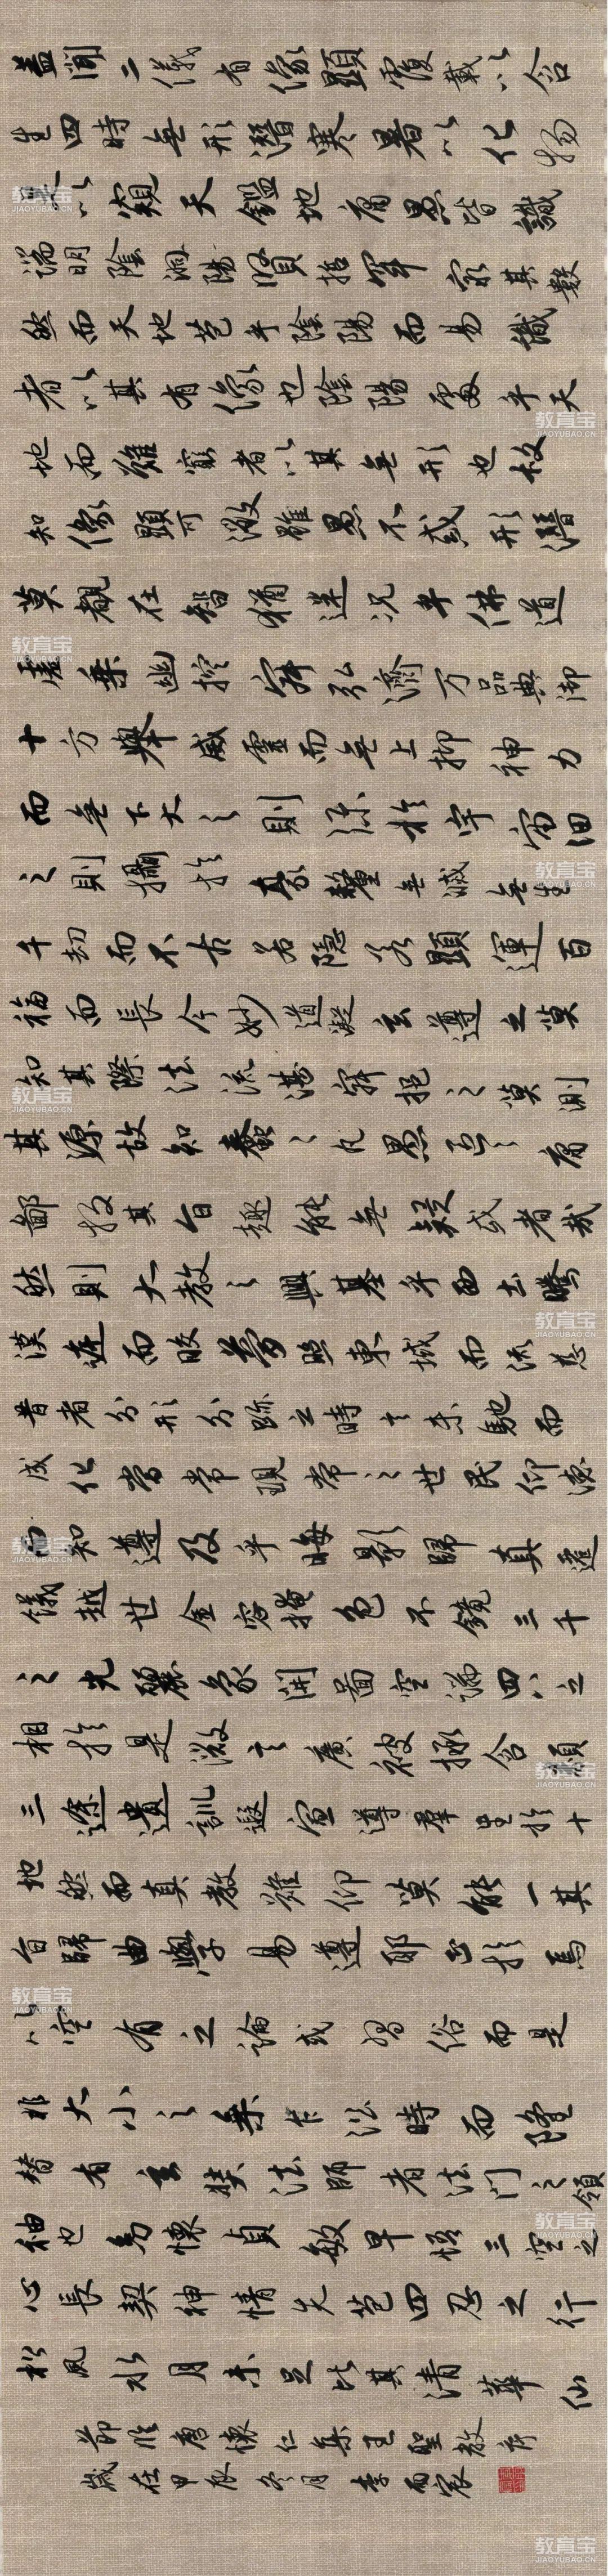 蓋聞二儀有像顯覆載以含
生四時無形潛寒暑以化物
是以窺天鑑地庸愚皆識
端明陰洞陽賢哲罕窮其數
然而天地苞乎陰陽而易識
者以其有像也陰陽處乎天
地而難窮者以其無形也故
知像顯可徵雖愚不惑形潛
莫覩在智猶迷況乎佛道
虛乘幽控寂弘濟万品典御
十方舉威靈而無上抑神力
而無下大之則彌於宇宙細
之則攝於豪釐無滅無生
千劫而不古若隱若顯運百
福而長今妙道凝玄遵之莫
知其際法流湛寂挹之莫測
其源故知蠢〻凡愚區〻庸
鄙投其旨趣能無疑惑者哉
然則大教之興基乎西土騰
漢庭而皎夢照東域而流慈
昔者分形分跡之時言未馳而
成化當常現常之世民仰德
而知遵及乎晦影歸真遷
儀越世金容掩色不鏡三千
之光麗象開圖空端四八之
相於是微言廣被拯含類
三途遺訓遐宣導群生於十
地然而真教難仰莫能一其
旨歸曲學易遵耶正於焉
以空有之論或習俗而是
非大小之乘乍沿時而隆
替有玄奘法師者法門之領
袖也幼懷貞敏早悟三空之
心長契神情先苞四忍之行
松風水月未足比其清華仙
節臨唐懷仁集王聖教序
歲在甲辰冬月 李雨宸
教育宝
JIAOYUBAO.CN